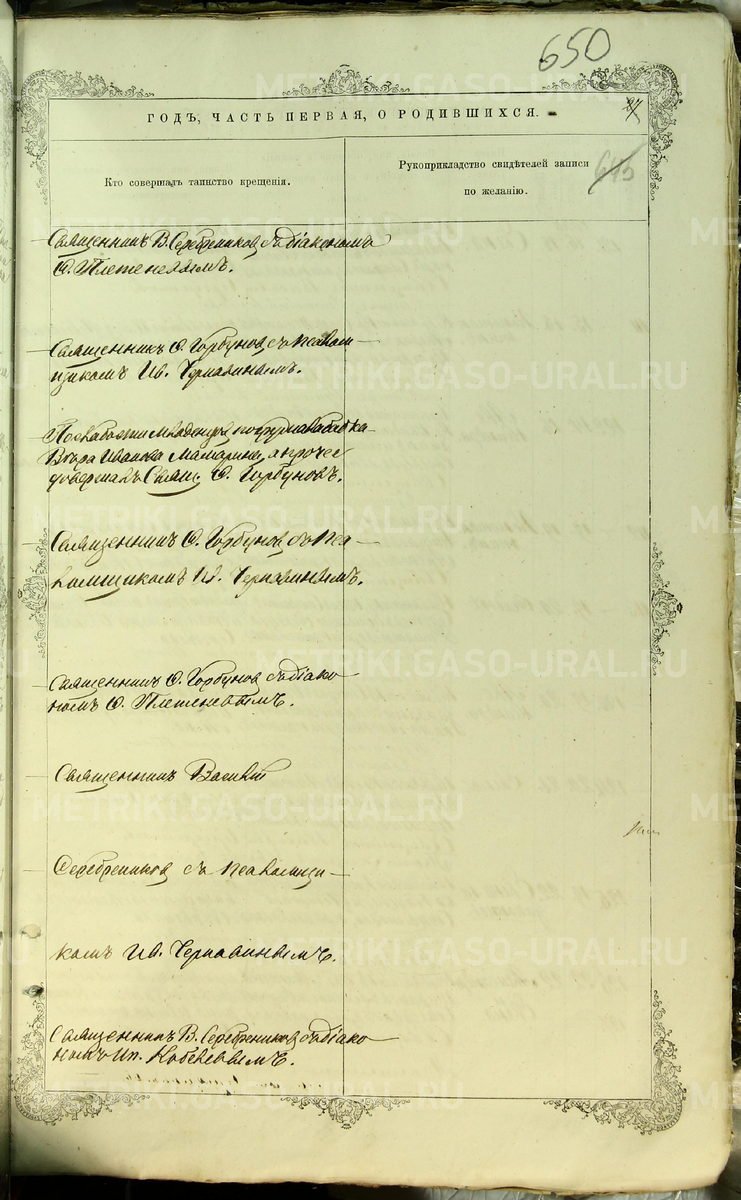 650
ГОДЪ, ЧАСТЬ ПЕРВАЯ, О РОДИВШИХСЯ.
Кто совершалъ таинство крещенія.
Рукоприкладство свидѣтелей записи
по желанію.
645
Священникъ В. Серебренниковъ съ діакономъ
Ѳ. Плетеневымъ.
Священникъ Ѳ. Горбуновъ съ псалом
щикомъ Ив. Чернавинымъ.
По слабости младенца погружала бабка
Вѣра Иванова Мамарина, а прочее
довершалъ Свящ. Ѳ. Горбуновъ.
Священникъ Ѳ. Горбуновъ съ Пса
ломщикомъ Ив. Чернавинымъ.
Священникъ Ѳ. Горбуновъ съ діако
номъ Ѳ. Плетеневымъ.
Священникъ Василій
Серебренниковъ съ Псаломщи
комъ Ив. Чернавинымъ.
Священникъ В. Серебренниковъ съ діако
номъ Ип. Кобелевымъ.
METRIKI.GASO-URAL.RU